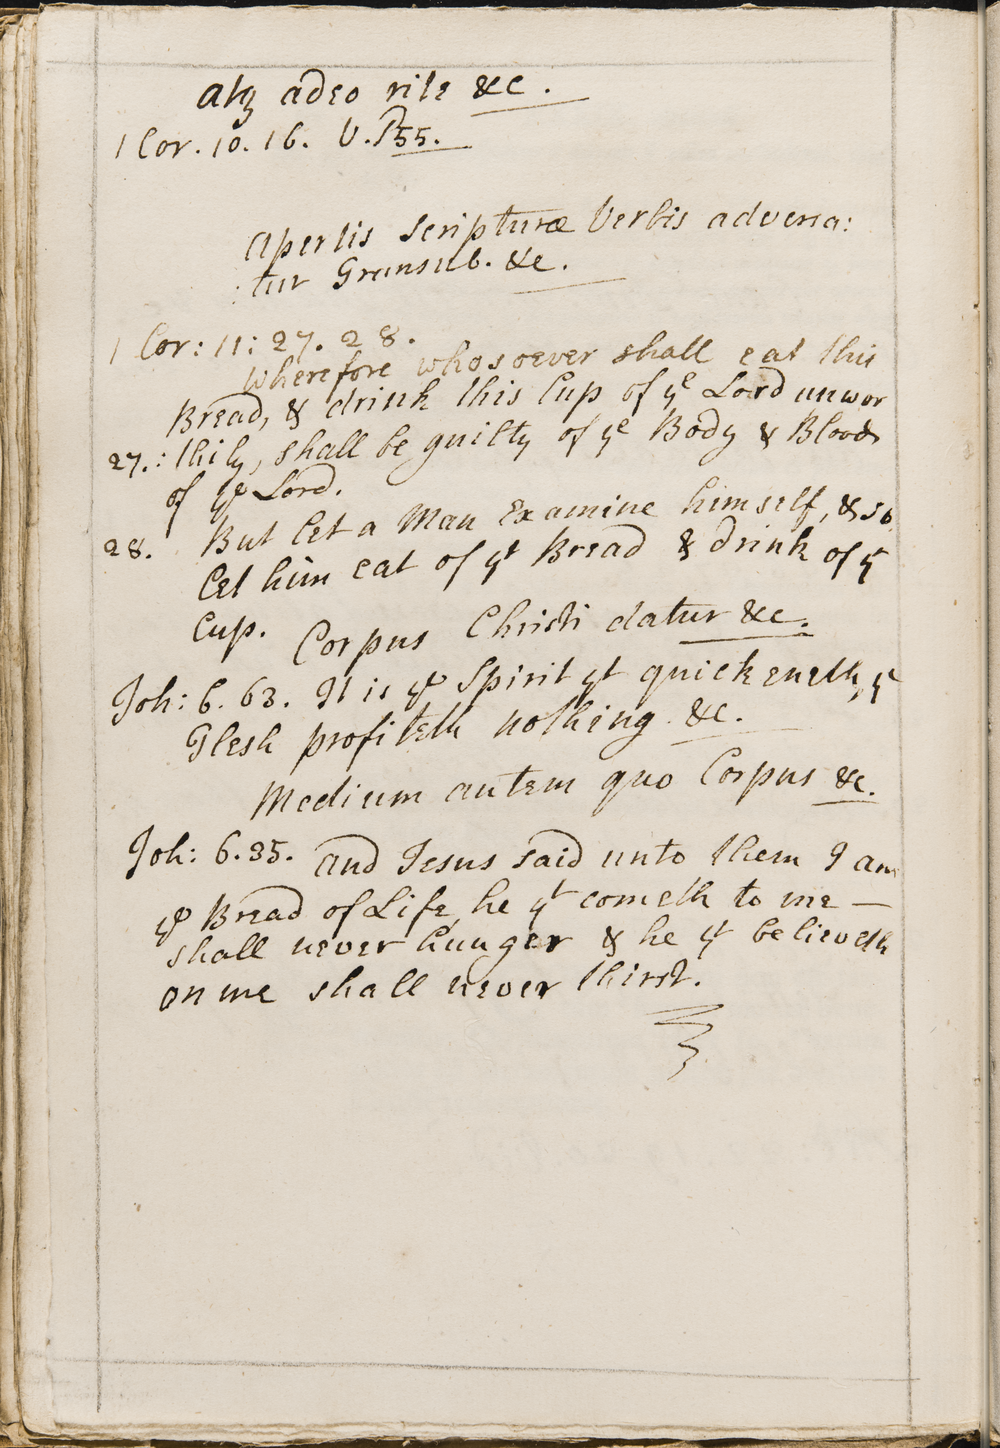 Atq adeo rite &c.
1 Cor. 10. 16. V. P 55.
Apertis Scripturæ Verbis adversa:
:tur Transub. &c.
1 Cor: 11: 27. 28.
Wherefore whosoever shall eat this
Bread, & drink this Cup of ye Lord unwor
27.: thily, shall be guilty of ye Body & Blood
of ye Lord.
28. But let a Man Examine himself, & so
let him eat of yt Bread & drink of yt
Cup.
Corpus Christi datur &c.
Joh: 6. 63. It is ye Spirit yt quickeneth, ye
Flesh profiteth nothing &c.
Medium autem quo Corpus &c.
Joh: 6. 35. And Jesus said unto them I am
ye Bread of Life, he yt cometh to me —
shall never hunger & he yt believeth
on me shall never thirst.